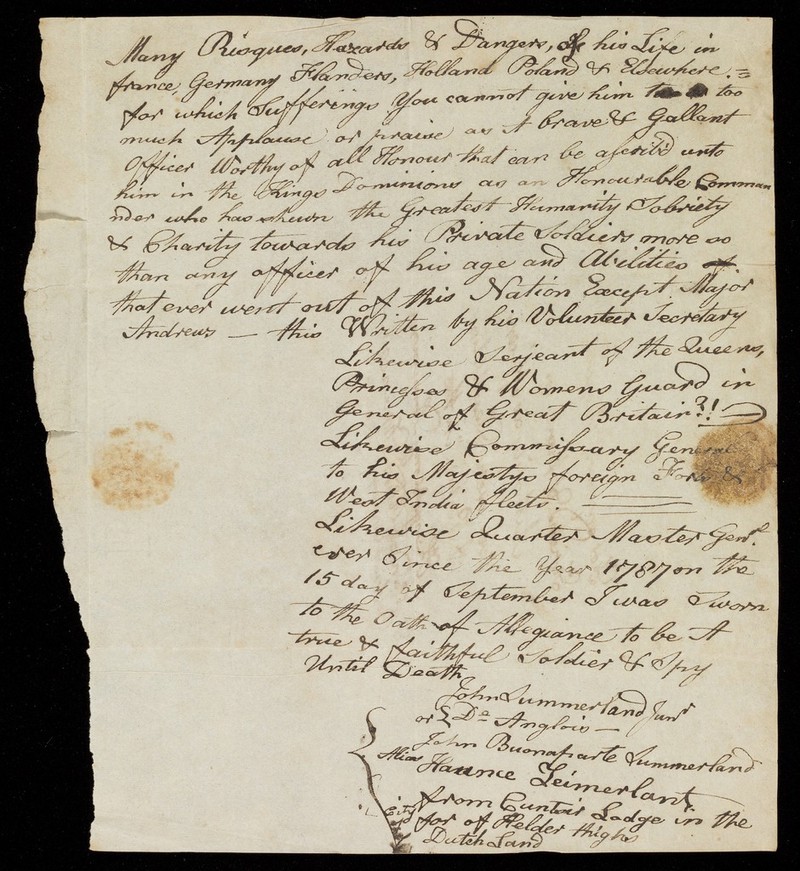 Many Risques, Hazards & Dangers, of his Life in
france, Germany Flanders, Holland Poland & Elsewhere. =
for which Sufferings You cannot give him too
much Applause, or praise as A brave & Gallant
Officer Worthy of all Honour that can be ascrib'd unto
him in the Kings Dominions as an Honourable Comman
nder who has shewn the Greatest Humanity Sobriety
& Charity towards his Private Soldiers more so
than any officer of his age and Abilities
that ever went out of this Nation Except Major
Andrews — this Written by his Volunteer Secretary
Likewise Serjeant of the Queens,
Princesses & Womens Guard in
General of Great Britain?!
Likewise Commissary General
to his Majestys foreign Forts &
West India fleets.
Likewise Quarter Master Genl.
ever Since the Year 1787 on the
15 day of September I was Sworn
to the Oath of Allegiance to be A
true & faithful Soldier & Spy
Until Death
John Summerland Junr
or Do Anglois —
John Buonaparte Summerland
Alias Haunce Zeimerlant
from Cuntoir Lodge in the
City for of Helder Highs
Dutch Land